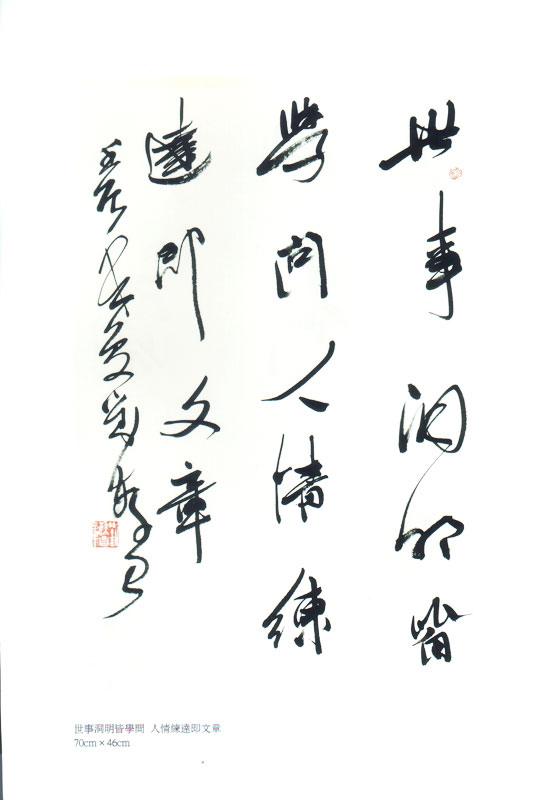 世事洞明皆
學問人情練
達即文章
世事洞明皆學問 人情練達即文章
70cm × 46cm